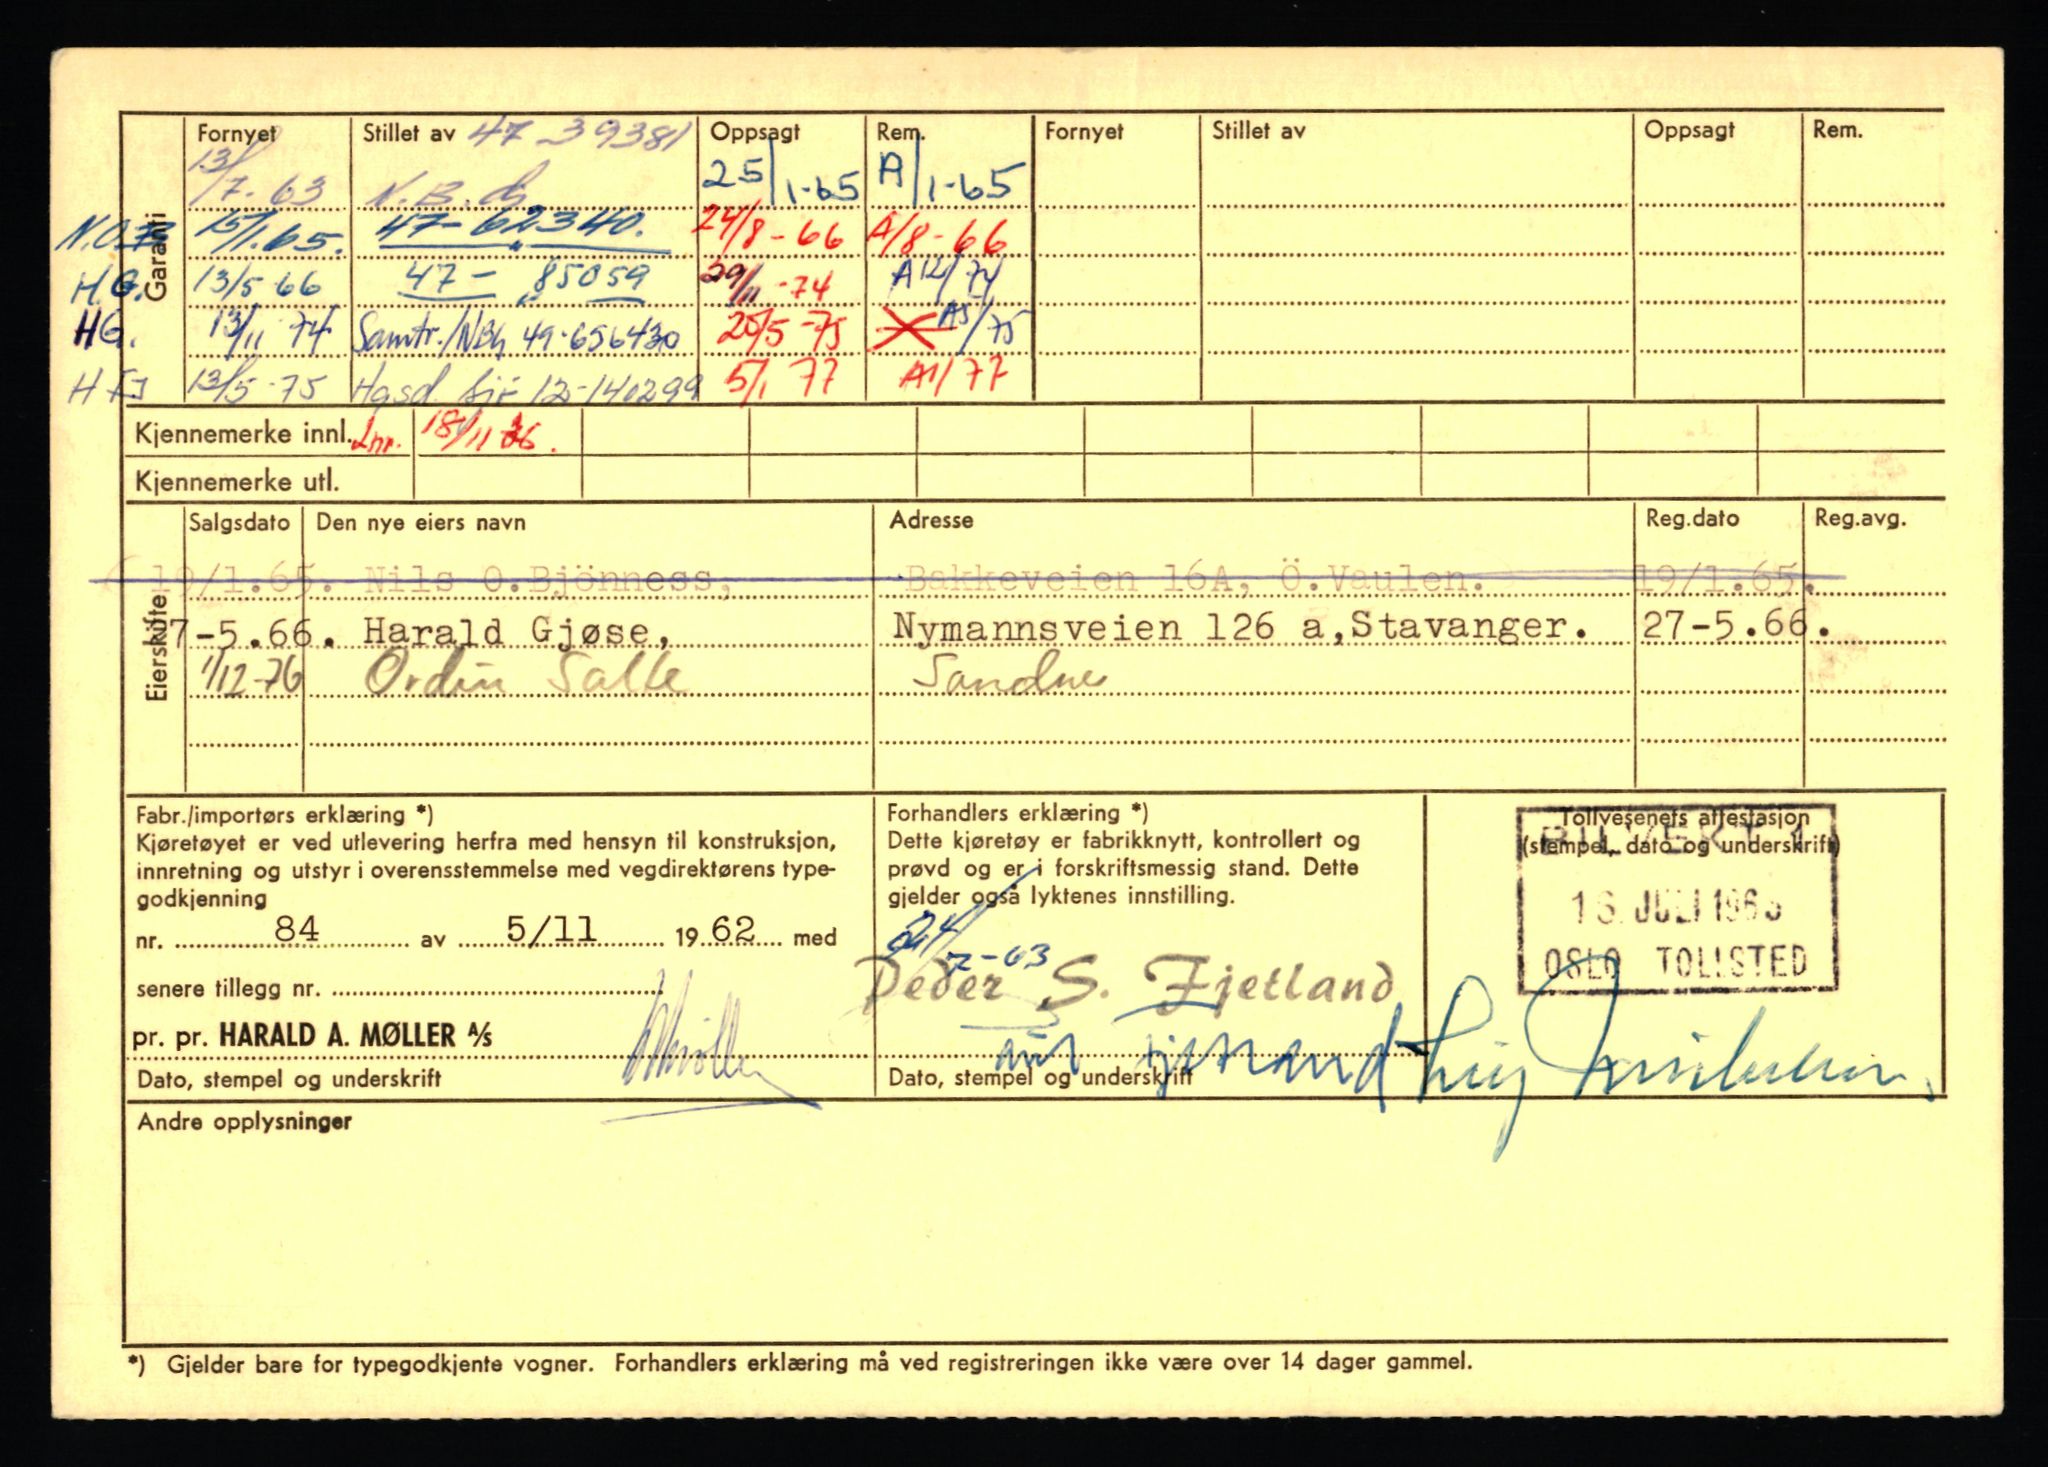 Garanti
Fornyet Stillet av 47-39381 Oppsagt Rem. Fornyet Stillet av Oppsagt Rem.
13/7.63 N.B. 25/1-65 A/1-65
N.O.B 15/1.65. 47-62340. 24/8-66 A/8-66
H.G. 13/5 66 47- 85059 29/11-74 A12/74
HG. 13/11 74 Samtr./NBh 49.656430 20/5-75 A5/75
13/5-75 12-140299 5/1 77 A1/77
Kjennemerke innl. Inn. 18/11 76.
Kjennemerke utl.
Eierskifte
Salgsdato Den nye eiers navn Adresse Reg.dato Reg.avg.
19/1.65. Nils O.Bjönness, Bakkeveien 16A, Ö.Vaulen. 19/1.65.
27-5.66. Harald Gjøse, Nymannsveien 126 a,Stavanger. 27-5.66.
1/12-76 Ordin Salte Sandnes
Fabr./importørs erklæring *)
Kjøretøyet er ved utlevering herfra med hensyn til konstruksjon,
innretning og utstyr i overensstemmelse med vegdirektørens type-
godkjenning
nr. 84 av 5/11 1962 med
senere tillegg nr.
pr. pr. HARALD A. MØLLER A/S
Dato, stempel og underskrift
Forhandlers erklæring *)
Dette kjøretøy er fabrikknytt, kontrollert og
prøvd og er i forskriftsmessig stand. Dette
gjelder også lyktenes innstilling.
24/7-63
Peder S. Fjetland
Dato, stempel og underskrift
Tollvesenets attestasjon
(stempel, dato og underskrift)
BILVERK
16. JULI 1963
OSLO TOLLSTED
Andre opplysninger
*) Gjelder bare for typegodkjente vogner. Forhandlers erklæring må ved registreringen ikke være over 14 dager gammel.